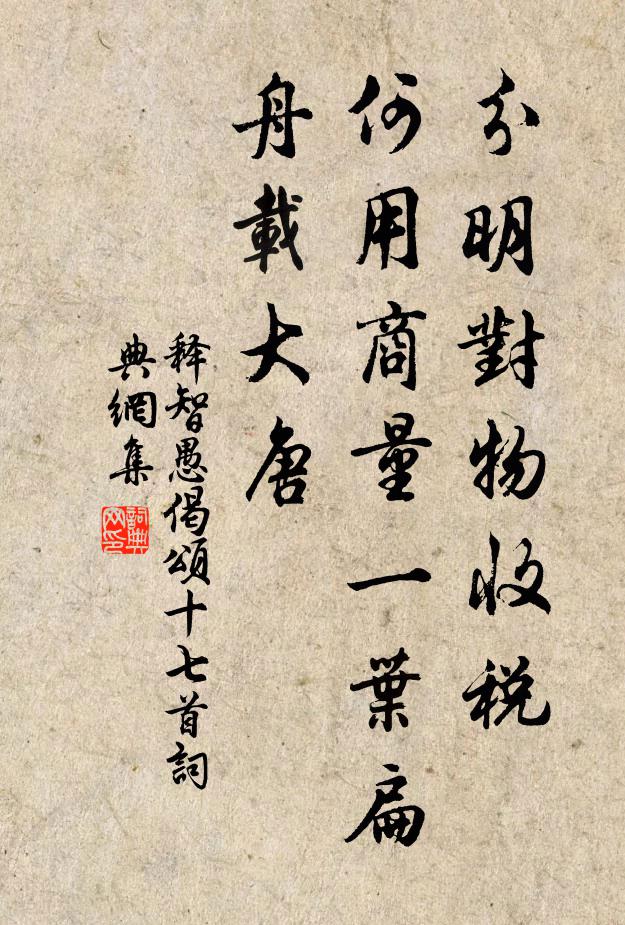 分明對物收税
何用商量一葉扁
舟載大唐
释智愚偈頌十七首詞
典網集
詞典网印